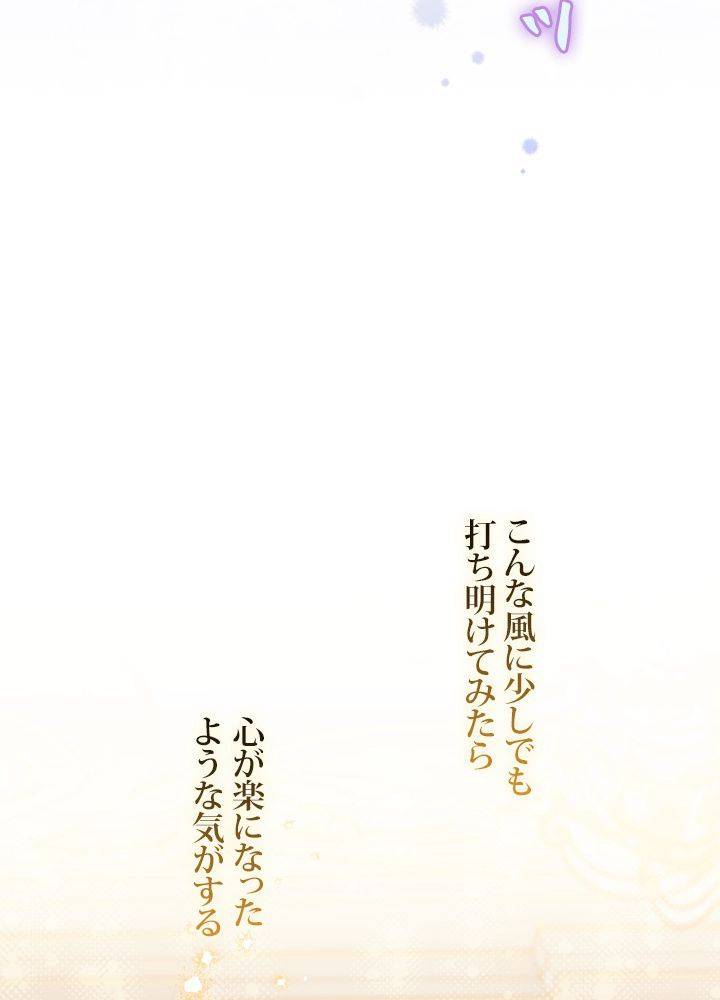 ッ
こんな風に少しでも
打ち明けてみたら
心が楽になった
ような気がする